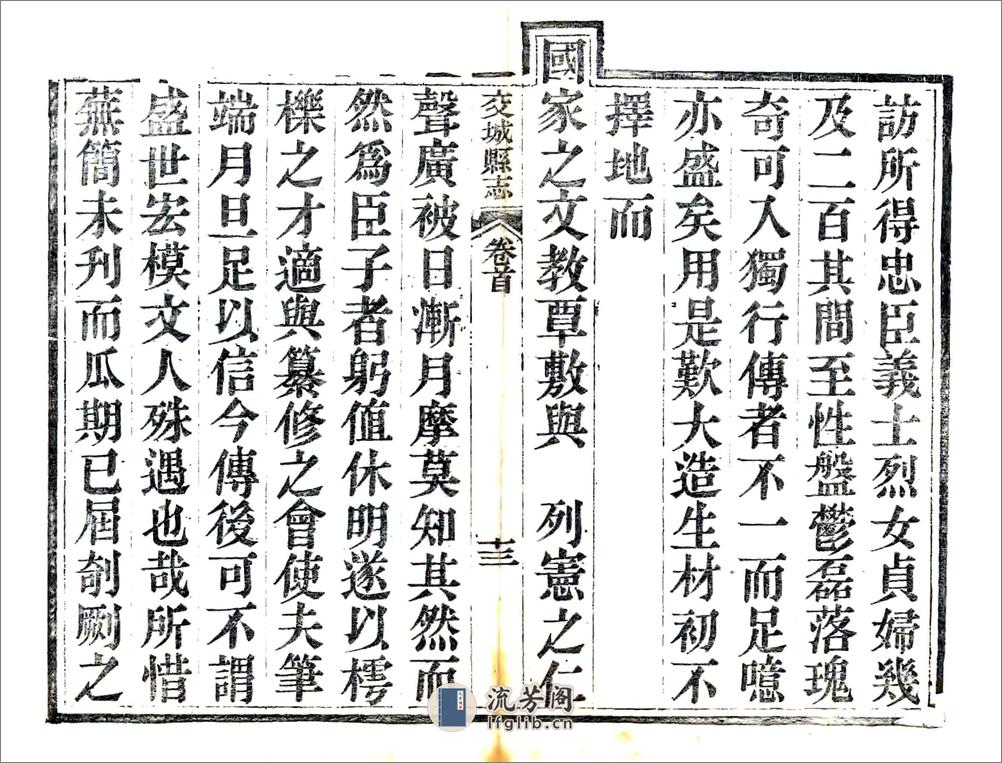 訪所得忠臣義士烈女貞婦幾
及二百其間至性盤鬱磊落瑰
奇可入獨行傳者不一而足噫
亦盛矣用是歎大造生材初不
擇地而
國家之文教覃敷與 列憲之仁
交城縣志 卷首 十三
聲廣被日漸月摩莫知其然而
然為臣子者躬值休明遂以樗
櫟之才適與纂修之會使夫筆
端月旦足以信今傳後可不謂
盛世宏模文人殊遇也哉所惜
蕪簡未刋而瓜期已屆剞劂之
流芳阁
lfglib.cn